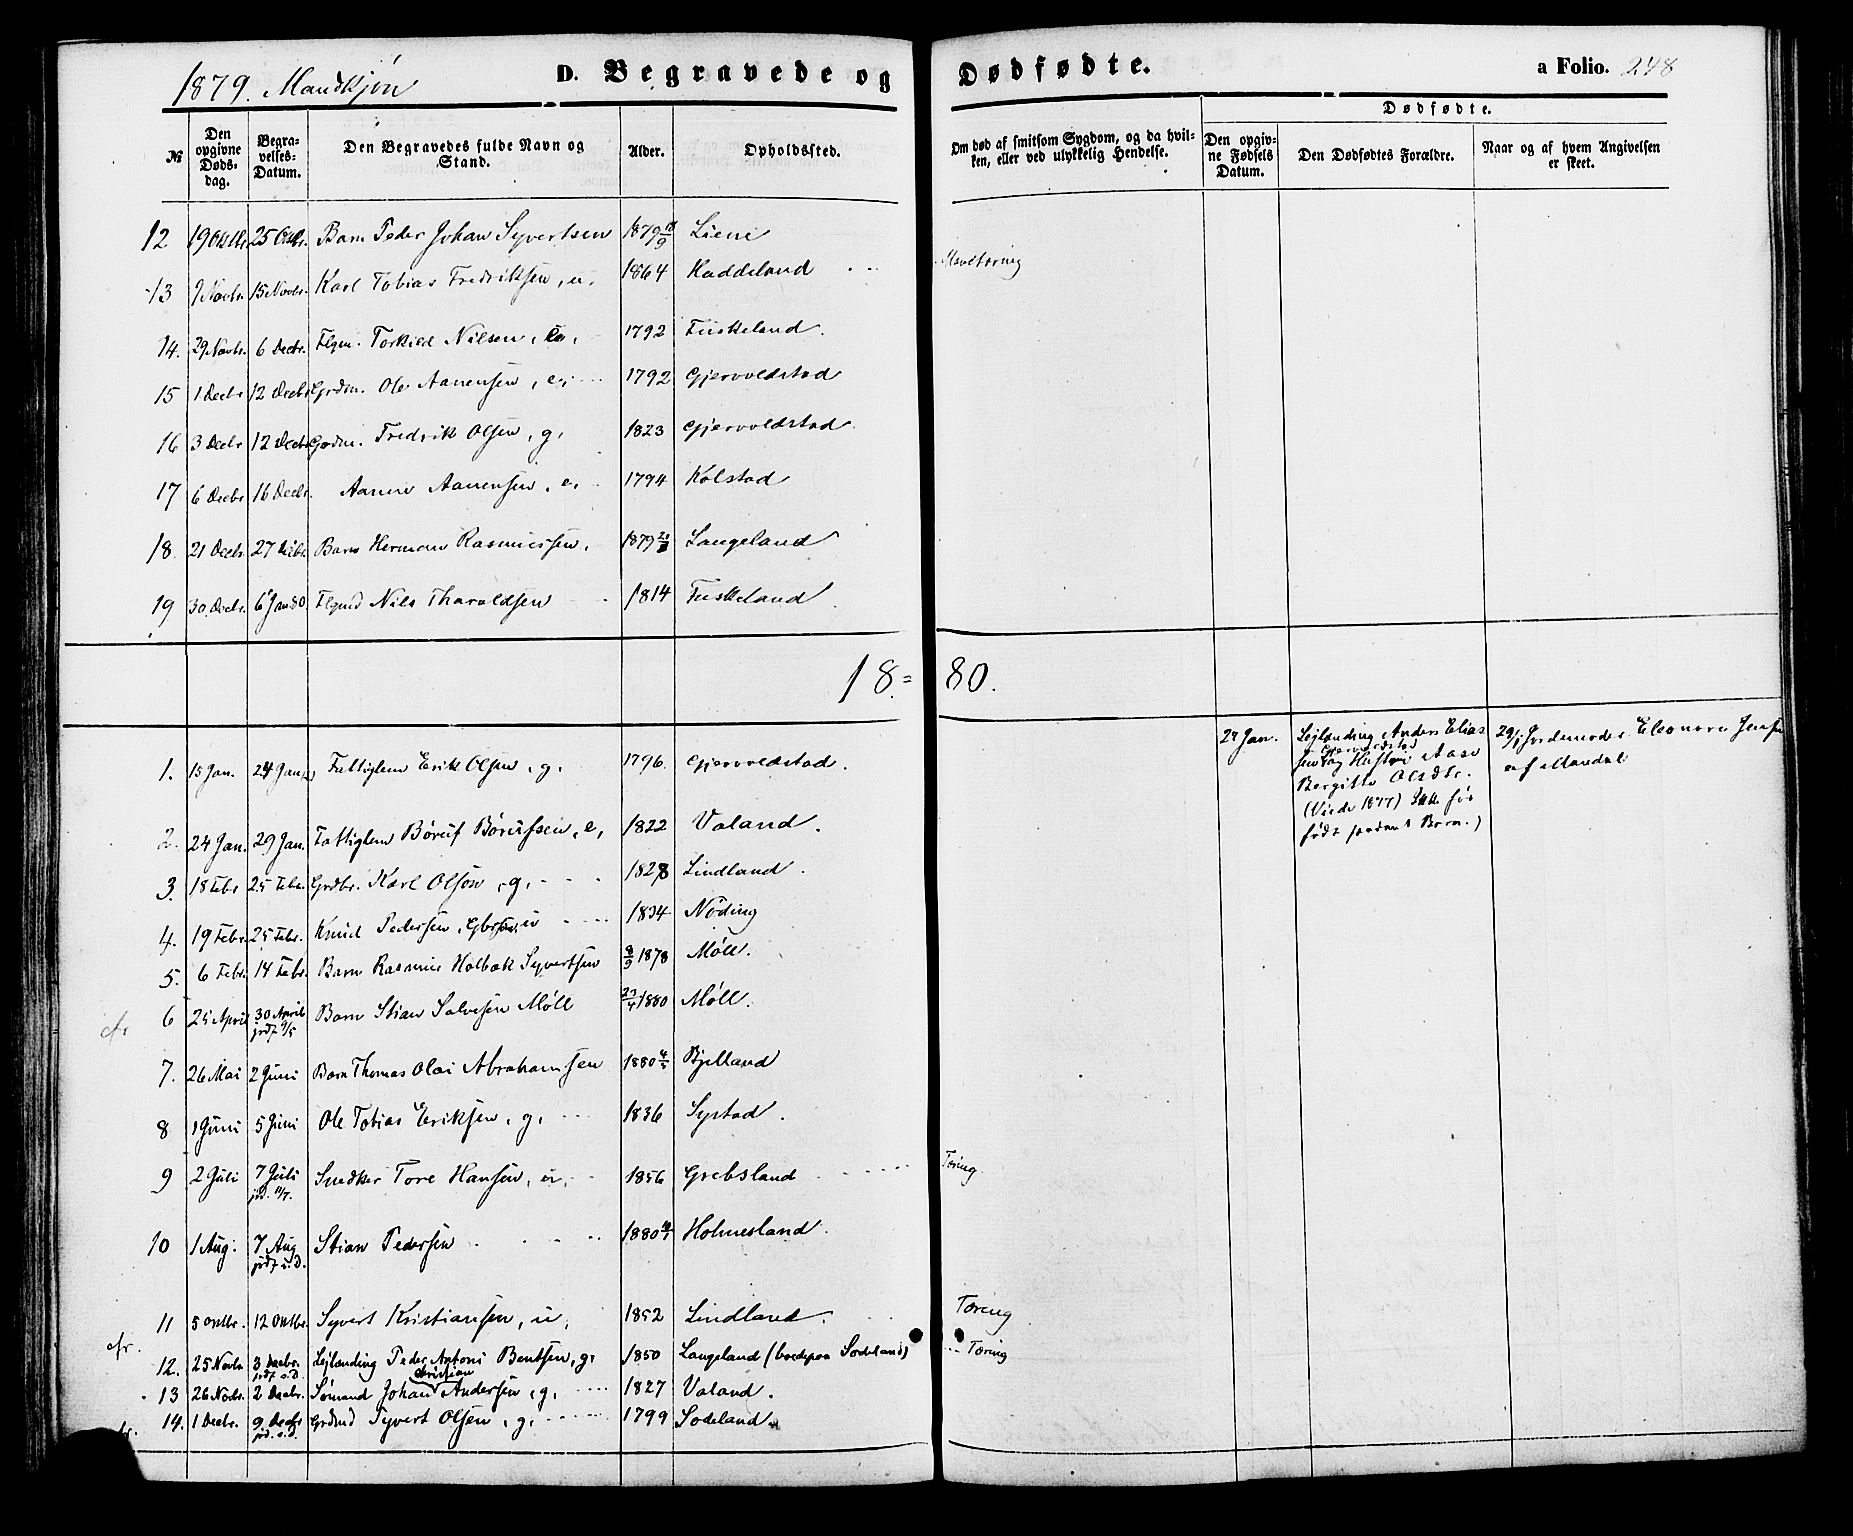 1879. Mandkjøn
D. Begravede og Dødfødte.
a Folio. 248
№
Den opgivne Døds- dag.
Begra- velses- Datum.
Den Begravedes fulde Navn og Stand.
Alder.
Opholdssted.
Om død af smitsom Sygdom, og da hvil- ken, eller ved ulykkelig Hendelse.
Dødfødte.
Den opgiv- ne Fødsels Datum.
Den Dødfødtes Forældre.
Naar og af hvem Angivelsen er skeet.
12 19 Octbr. 25 Octbr. Barn Peder Johan Syvertsen 1879 Lieni
13 9 Novbr. 15 Novbr. Karl Tobias Fredriksen, u. 1864 Haddeland
14. 29 Novbr. 6 Decbr. Flgm. Torkild Nilsen, 1792 Fuskeland.
15 1 Decbr 12 Decbr Grdm. Ole Aanensen, e, 1792 Gjervoldstad
16 3 Decbr 12 Decbr Grdm. Fredrik Olsen, g, 1823 Gjervoldstad.
17 6 Decbr 16 Decbr. Aanen Aanensen, e, 1794 Kolstad
18. 21 Decbr. 27 Decbr. Barn Herman Rasmussen, 1879 Langeland
19 30 Decbr. 6 Jan 80 Flgmd Nils Tharaldsen 1814 Fuskeland.
18=80.
1. 15 Jan. 24 Jan. Fattiglem Erik Olsen, g, 1796. Gjervoldstad.
27 Jan. Leilænding Anders Elias
sen Gjervoldstad
og Hustru Aase
Bergitte Olsdtr.
(Viede 1877) Ikke før
født Barn.)
29/1 Jordemoder Eleonore Jensen
af Mandal
2. 24 Jan. 29 Jan. Fattiglem Børuf Børufsen, e, 1822 Valand.
3. 18 Febr 25 Febr. Grdbr. Karl Olson, g, 1828 Lindland.
4. 19 Febr. 25 Febr. Knud Pedersen, u 1834 Nöding
5. 6 Febr. 14 Febr. Barn Rasmus Holbæk Syvertsen 8/9 1878 Møll.
cfr 6 25 April 30 April
jrdf 9/5 Barn Stian Salvesen Möll 23/4 1880 Møll.
7. 26 Mai 2 Juni Barn Thomas Olai Abrahamsen 1880 Bjelland
8 1 Juni 5 Juni Ole Tobias Eriksen, g, 1836 Systad.
9 2 Juli 7 Juli
jrd. 11/7. Snedker Tore Hansen, u, 1856 Grebsland Tæring.
10 1 Aug. 7 Aug
jrdf s.D. Stian Pedersen 1880 Holmesland.
11 5 Octbr. 12 Octbr. Syvert Kristiansen, u, 1852 Lindland. Tæring
cfr. 12. 25 Novbr 3 Decbr.
jrdf s.d. Lejlænding Peder Antoni Bentsen, g, 1850 Langeland (boede paa Sodeland) Tæring
13 26 Novbr. 2 Decbr. Sømand Johan Kristian Andersen, g, 1827 Valand.
14. 1 Decbr. 9 Decbr
jrd. s.d. Grdmd Syvert Olsen, g, 1799 Sodeland